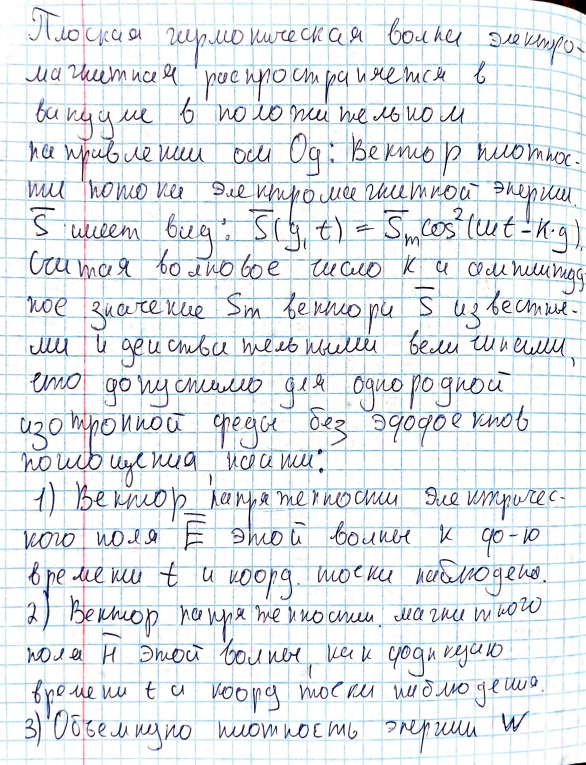 Плоская гармоническая волна электро-
магнитная распространяется в
вакууме в положительном
направлении оси Oy: Вектор плотнос-
ти потока электромагнитной энергии.
S̅ имеет вид: S̅(y, t) = S̅m cos²(ωt - к·y).
Считая волновое число К и амплитуд-
ное значение Sm вектора S̅ известны-
ми и действительными величинами,
что допустимо для однородной
изотропной среды без эффектов
поглощения найти:
1) Вектор напряженности электричес-
кого поля E̅ этой волны к ф-ю
времени t и коорд. точки наблюдено.
2) Вектор напряженности магнитного
поля H̅ этой волны, как функцию
времени t и коорд точки наблюдения.
3) Объемную плотность энергии W